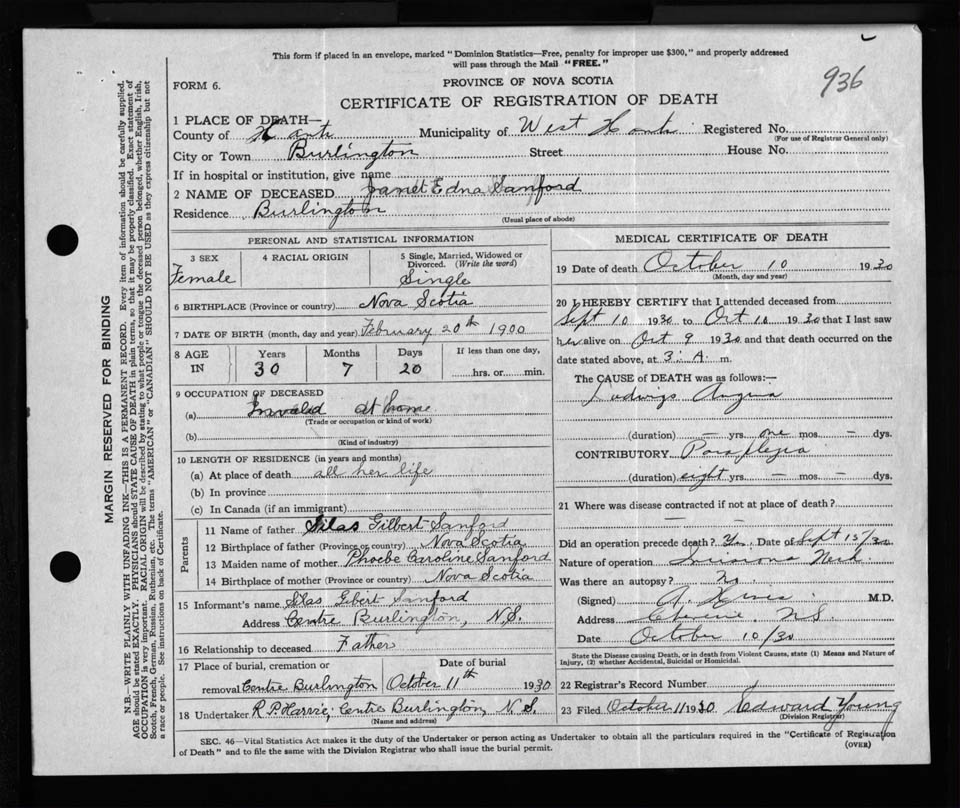 This form if placed in an envelope, marked "Dominion Statistics—Free, penalty for improper use $300," and properly addressed
will pass through the Mail "FREE."
936
FORM 6.
PROVINCE OF NOVA SCOTIA
CERTIFICATE OF REGISTRATION OF DEATH
1 PLACE OF DEATH—
County of Hants Municipality of West Hants Registered No.
(For use of Registrar General only)
City or Town Burlington Street House No.
If in hospital or institution, give name
2 NAME OF DECEASED Janet Edna Sanford
Residence Burlington
(Usual place of abode)
PERSONAL AND STATISTICAL INFORMATION
3 SEX 4 RACIAL ORIGIN 5 Single, Married, Widowed or
Divorced. (Write the word)
Female Single
6 BIRTHPLACE (Province or country) Nova Scotia
7 DATE OF BIRTH (month, day and year) February 20th 1900
8 AGE IN Years Months Days If less than one day,
30 7 20 hrs. or min.
9 OCCUPATION OF DECEASED
(a) Invalid at home
(Trade or occupation or kind of work)
(b)
(Kind of industry)
10 LENGTH OF RESIDENCE (in years and months)
(a) At place of death all her life
(b) In province
(c) In Canada (if an immigrant)
Parents
11 Name of father Silas Gilbert Sanford
12 Birthplace of father (Province or country) Nova Scotia
13 Maiden name of mother Phoebe Caroline Sanford
14 Birthplace of mother (Province or country) Nova Scotia
15 Informant's name Silas Gilbert Sanford
Address Centre Burlington, N.S.
16 Relationship to deceased Father
17 Place of burial, cremation or Date of burial
removal Centre Burlington October 11th 1930
18 Undertaker R.P. Harvie, Centre Burlington, N.S.
(Name and address)
MEDICAL CERTIFICATE OF DEATH
19 Date of death October 10 1930
(Month, day and year)
20 I HEREBY CERTIFY that I attended deceased from
Sept 10 1930 to Oct 10 1930 that I last saw
her alive on Oct 9 1930 and that death occurred on the
date stated above, at 3 A. m.
The CAUSE OF DEATH was as follows:—
Ludwigs Angina
(duration) — yrs. one mos. — dys.
CONTRIBUTORY Paraplegia
(duration) eight yrs. — mos. — dys.
21 Where was disease contracted if not at place of death?
Did an operation precede death? Yes Date of Sept 15/30
Nature of operation Incisions Neck
Was there an autopsy? No
(Signed) M.D.
Address N.S.
Date October 10/30
State the Disease causing Death, or in death from Violent Causes, state (1) Means and Nature of
Injury, (2) whether Accidental, Suicidal or Homicidal.
22 Registrar's Record Number
23 Filed October 11 1930 Edward Young
(Division Registrar)
SEC. 46—Vital Statistics Act makes it the duty of the Undertaker or person acting as Undertaker to obtain all the particulars required in the "Certificate of Registration
of Death" and to file the same with the Division Registrar who shall issue the burial permit.
(OVER)
MARGIN RESERVED FOR BINDING
N.B.—WRITE PLAINLY WITH UNFADING INK—THIS IS A PERMANENT RECORD. Every item of information should be carefully supplied.
AGE should be stated EXACTLY. PHYSICIANS should STATE CAUSE OF DEATH in plain terms, so that it may be properly classified. Exact statement of
OCCUPATION is very important. RACIAL ORIGIN will be described by stating to what people or tongue the deceased person belonged, whether English, Irish,
Scotch, French, German, Russian, Ruthenian, etc. The terms "AMERICAN" or "CANADIAN" SHOULD NOT BE USED as they express citizenship but not
a race or people. See instructions on back of Certificate.